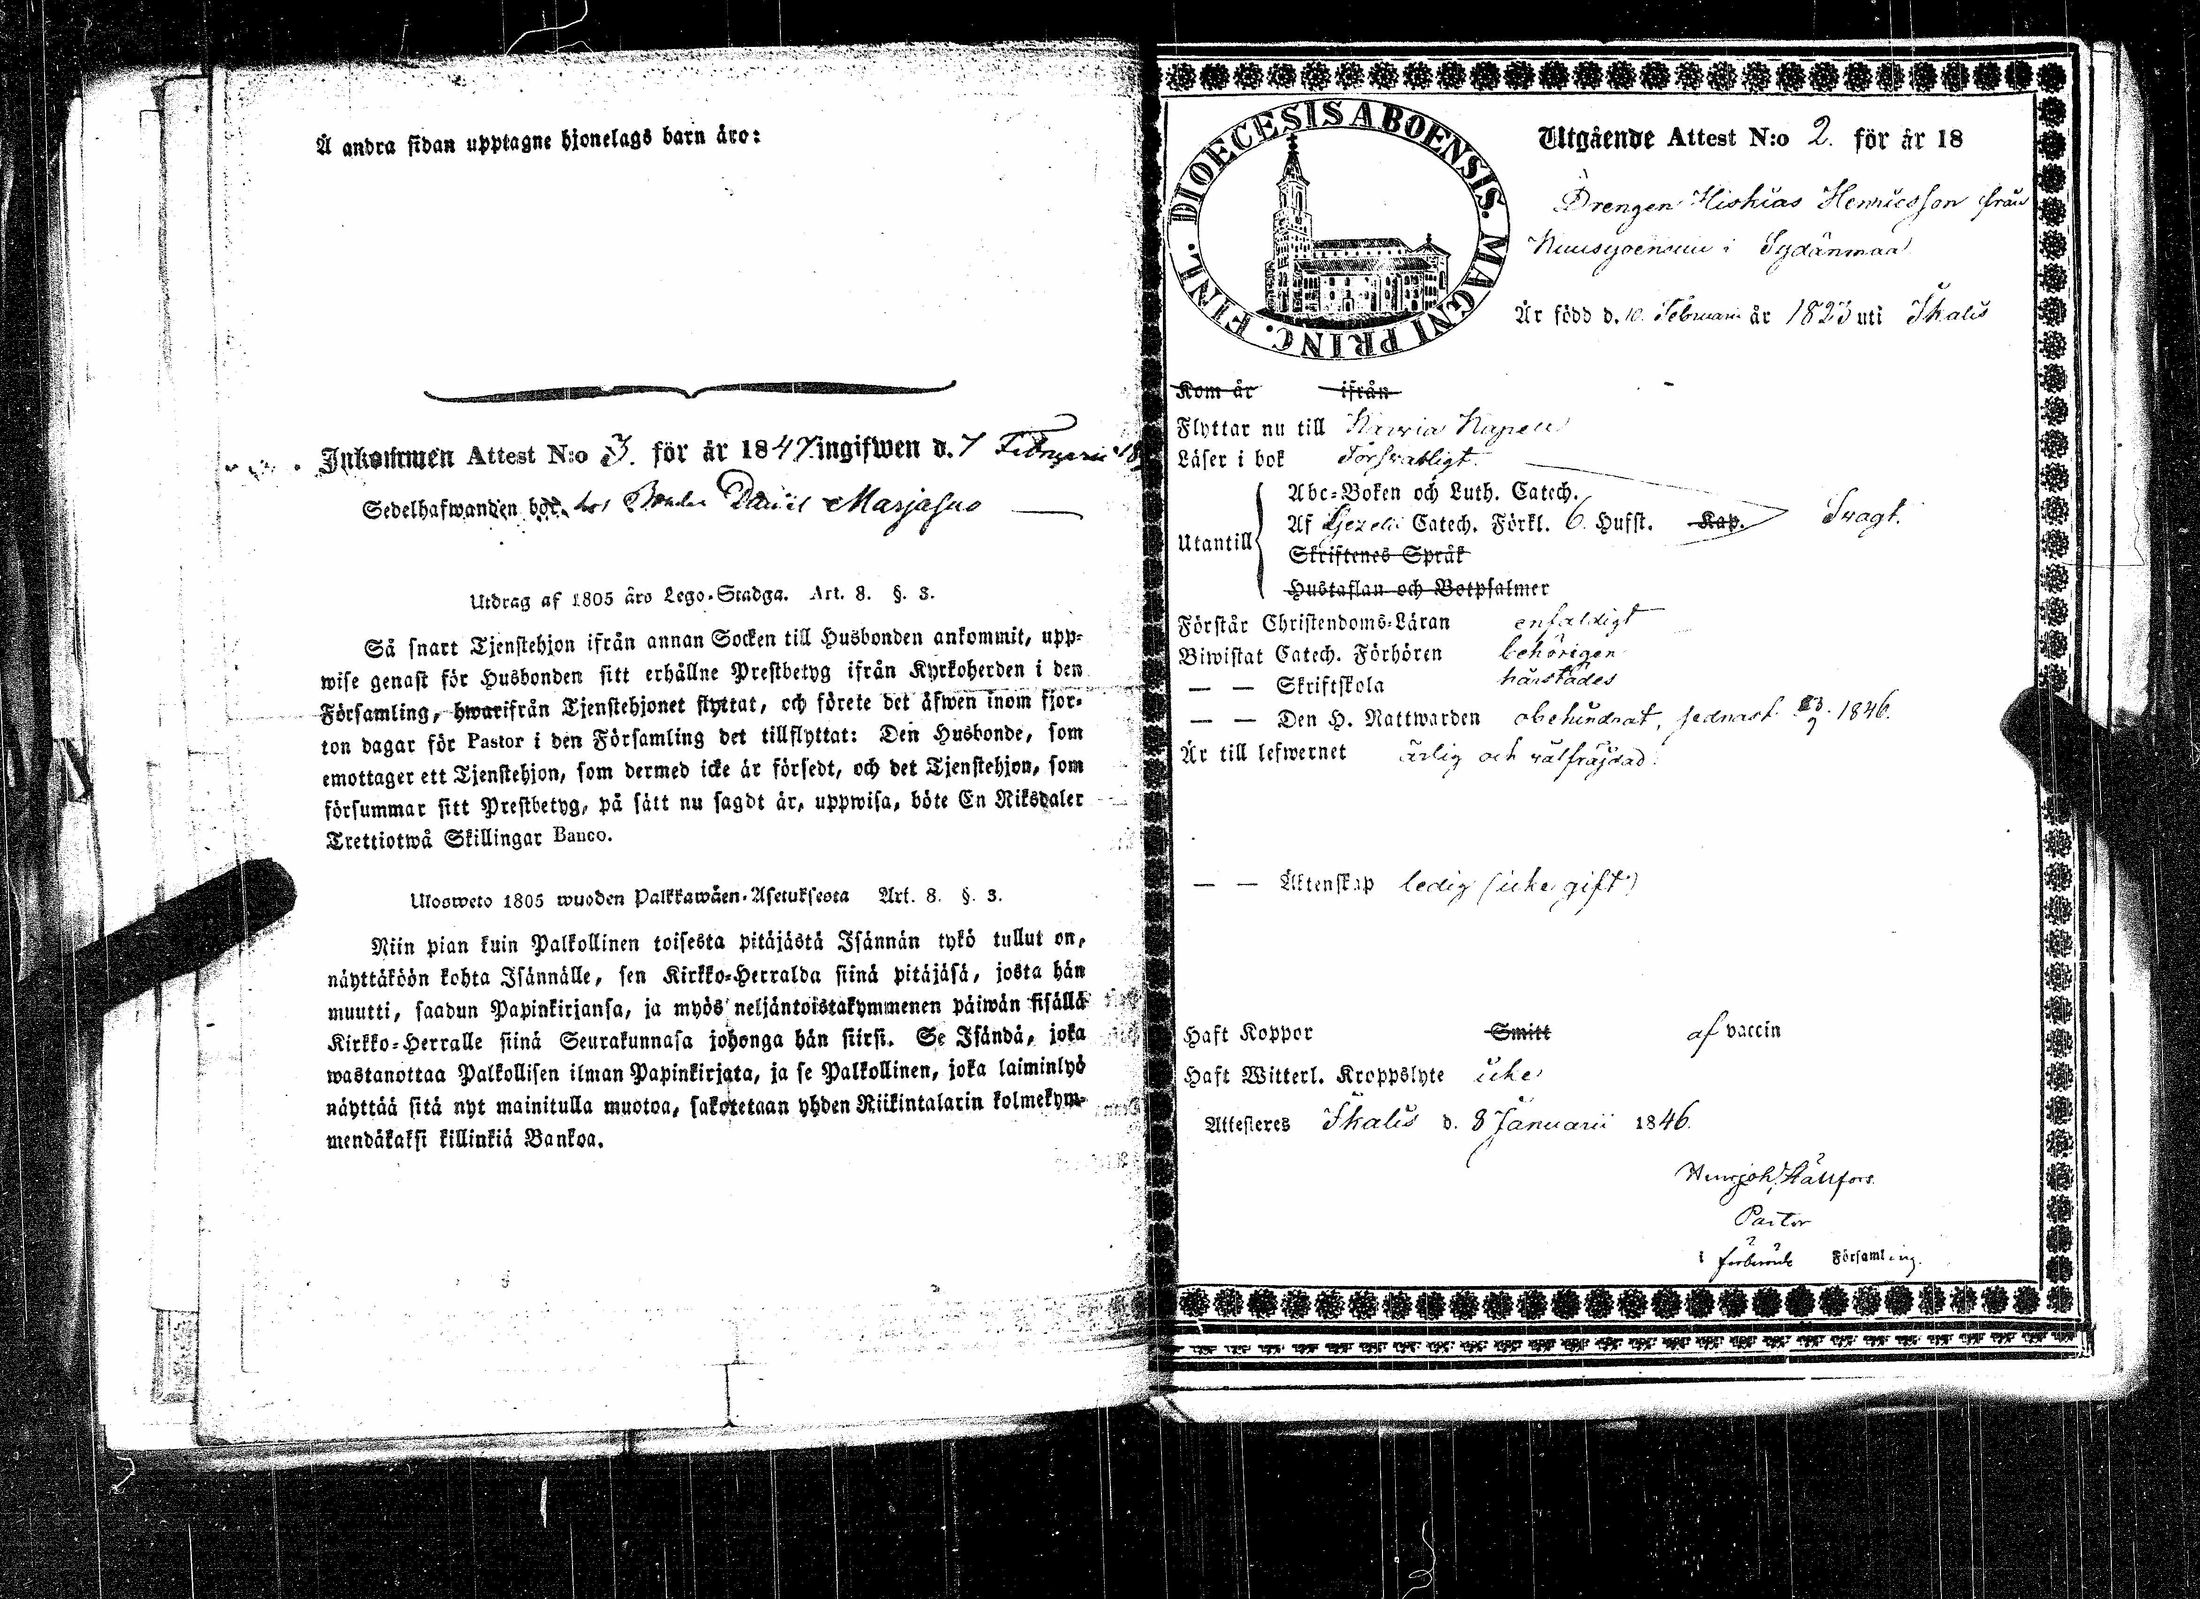 Å andra sidan upptagne hjonelags barn äro:
Inkommen Attest N:o 3. för år 1847. ingifwen d. 7 Februarii
Sedelhafwanden bor hos Bonden Daniel Marjasuo
Utdrag af 1805 års Lego-Stadga. Art. 8. §. 3.
Så snart Tjenstehjon ifrån annan Socken till Husbonden ankommit, upp-
wise genast för Husbonden sitt erhållne Prestbetyg ifrån Kyrkoherden i den
Församling, hwarifrån Tjenstehjonet flyttat, och förete det äfwen inom fjor-
ton dagar för Pastor i den Församling det tillflyttat: Den Husbonde, som
emottager ett Tjenstehjon, som dermed icke är försedt, och det Tjenstehjon, som
försummar sitt Prestbetyg, på sätt nu sagdt är, uppwisa, böte En Riksdaler
Trettiotwå Skillingar Banco.
Ulosweto 1805 wuoden Palkkawäen-Asetuksesta Art. 8. §. 3.
Niin pian kuin Palkollinen toisesta pitäjästä Isännän tykö tullut on,
näyttäköön kohta Isännälle, sen Kirkko-Herralda siinä pitäjäsä, josta hän
muutti, saadun Papinkirjansa, ja myös neljäntoistakymmenen päiwän sisällä
Kirkko-Herralle siinä Seurakunnasa johonga hän siirsi. Se Isändä, joka
wastanottaa Palkollisen ilman Papinkirjata, ja se Palkollinen, joka laiminlyö
näyttää sitä nyt mainitulla muotoa, sakotetaan yhden Riikintalarin kolmekym-
mendäkaksi killinkiä Bankoa.
DIOECESIS ABOENSIS. MAGNI PRINC. FINL.
Utgående Attest N:o 2. för år 18
Drengen Hiskias Henricsson från
i Sydänmaa
Är född d. 10. Februarii år 1823 uti Ikalis
Kom år ifrån
Flyttar nu till Karvia Kapell
Läser i bok Försvarligt.
Utantill
Abc-Boken och Luth. Catech.
Af Gezelii Catech. Förkl. 6. Hufst. Kap. Svagt.
Skriftenes Språk
Hustaflan och Botpsalmer
Förstår Christendoms-Läran enfaldigt
Biwistat Catech. Förhören behörigen
— — Skriftskola härstädes
— — Den H. Nattwarden obehindrat, sednast 1846.
Är till lefwernet ärlig och välfräjdad.
— — Äktenskap ledig (icke gift)
Haft Koppor Smitt af vaccin
Haft Witterl. Kroppslyte icke
Attesteres Ikalis d. 8 Januarii 1846.
Hällfors
Pastor
i förberörde Församling.